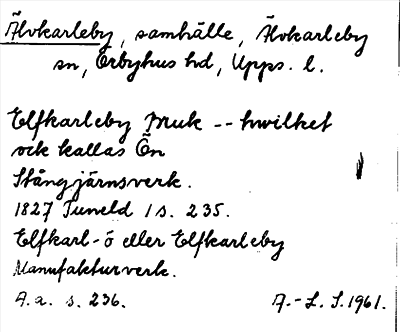 Älvkarleby, samhälle, Älvkarleby
sn, Örbyhus hd, Upps. l.
Elfkarleby Bruk -- hwilket
ock kallas Ön
Stångjärnsverk.
1827 Tuneld 1 s. 235.
Elfkarl-ö eller Elfkarleby
Manufakturverk.
A.a. s. 236.
A.-L. S. 1961.